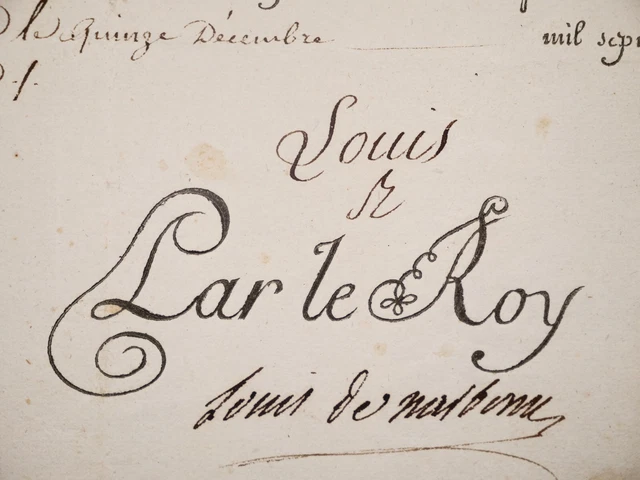 le Quinze Décembre mil sept
Louis
Par le Roy
Louis de narbonne